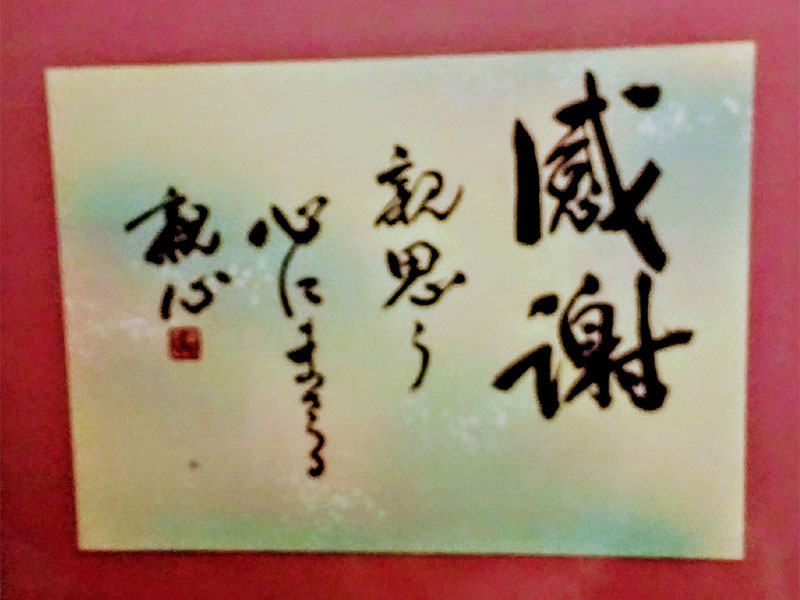 感謝
親思う
心にまさる
親心